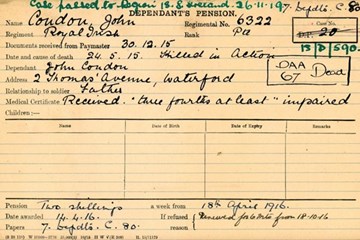 Case
to Region 18. S.
26-11-19
7. Depdts. C. 80
DEPENDANT'S PENSION.
Name Condon, John Regimental No. 6322 Case No.
Regiment Royal Irish Rank Pte 20
Documents received from Paymaster 30.12.15 13/D/590
Date and cause of death 24.5.15. Killed in Action
Dependant John Condon DAA 67 Dead
Address 2 Thomas' Avenue, Waterford
Relationship to soldier Father
Medical Certificate Received. "three fourths at least" impaired
Children:—
Name Date of Birth Date of Expiry Consecutive No.
Pension Two shillings a week from 18th April 1916.
Date awarded 14.4.16. If refused Renewed for 6 mths from 18-10-16
Papers 7. Depdts. C. 80. reason